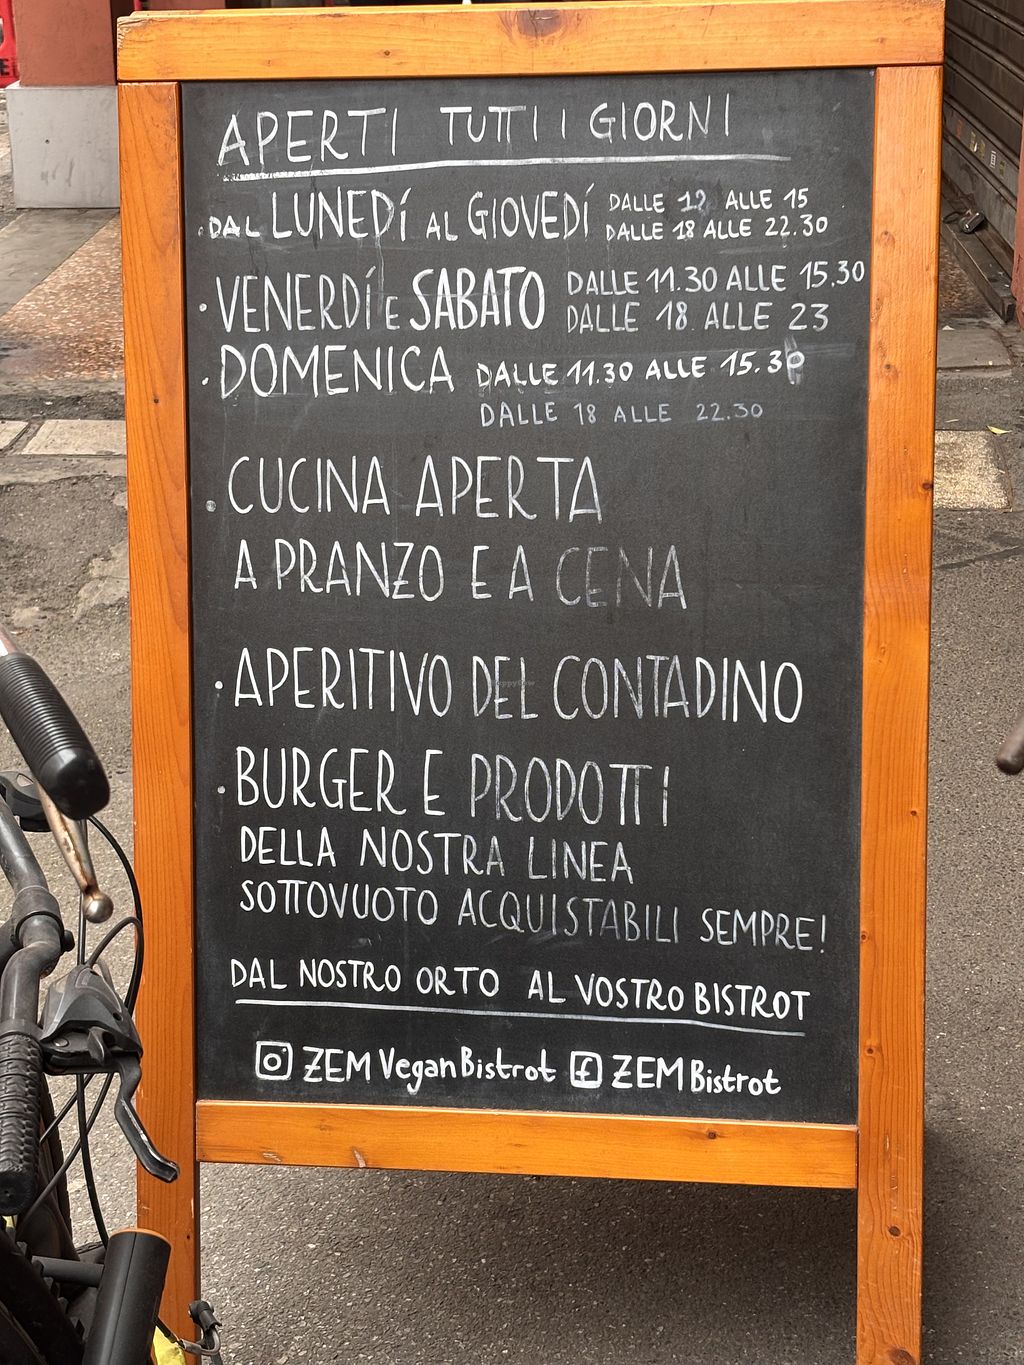 APERTI TUTTI I GIORNI
. DAL LUNEDÍ AL GIOVEDÍ DALLE 12 ALLE 15
DALLE 18 ALLE 22.30
. VENERDÍ E SABATO DALLE 11.30 ALLE 15.30
DALLE 18 ALLE 23
. DOMENICA DALLE 11.30 ALLE 15.30
DALLE 18 ALLE 22.30
. CUCINA APERTA
A PRANZO E A CENA
. APERITIVO DEL CONTADINO
. BURGER E PRODOTTI
DELLA NOSTRA LINEA
SOTTOVUOTO ACQUISTABILI SEMPRE!
DAL NOSTRO ORTO AL VOSTRO BISTROT
ZEM VeganBistrot f ZEM Bistrot